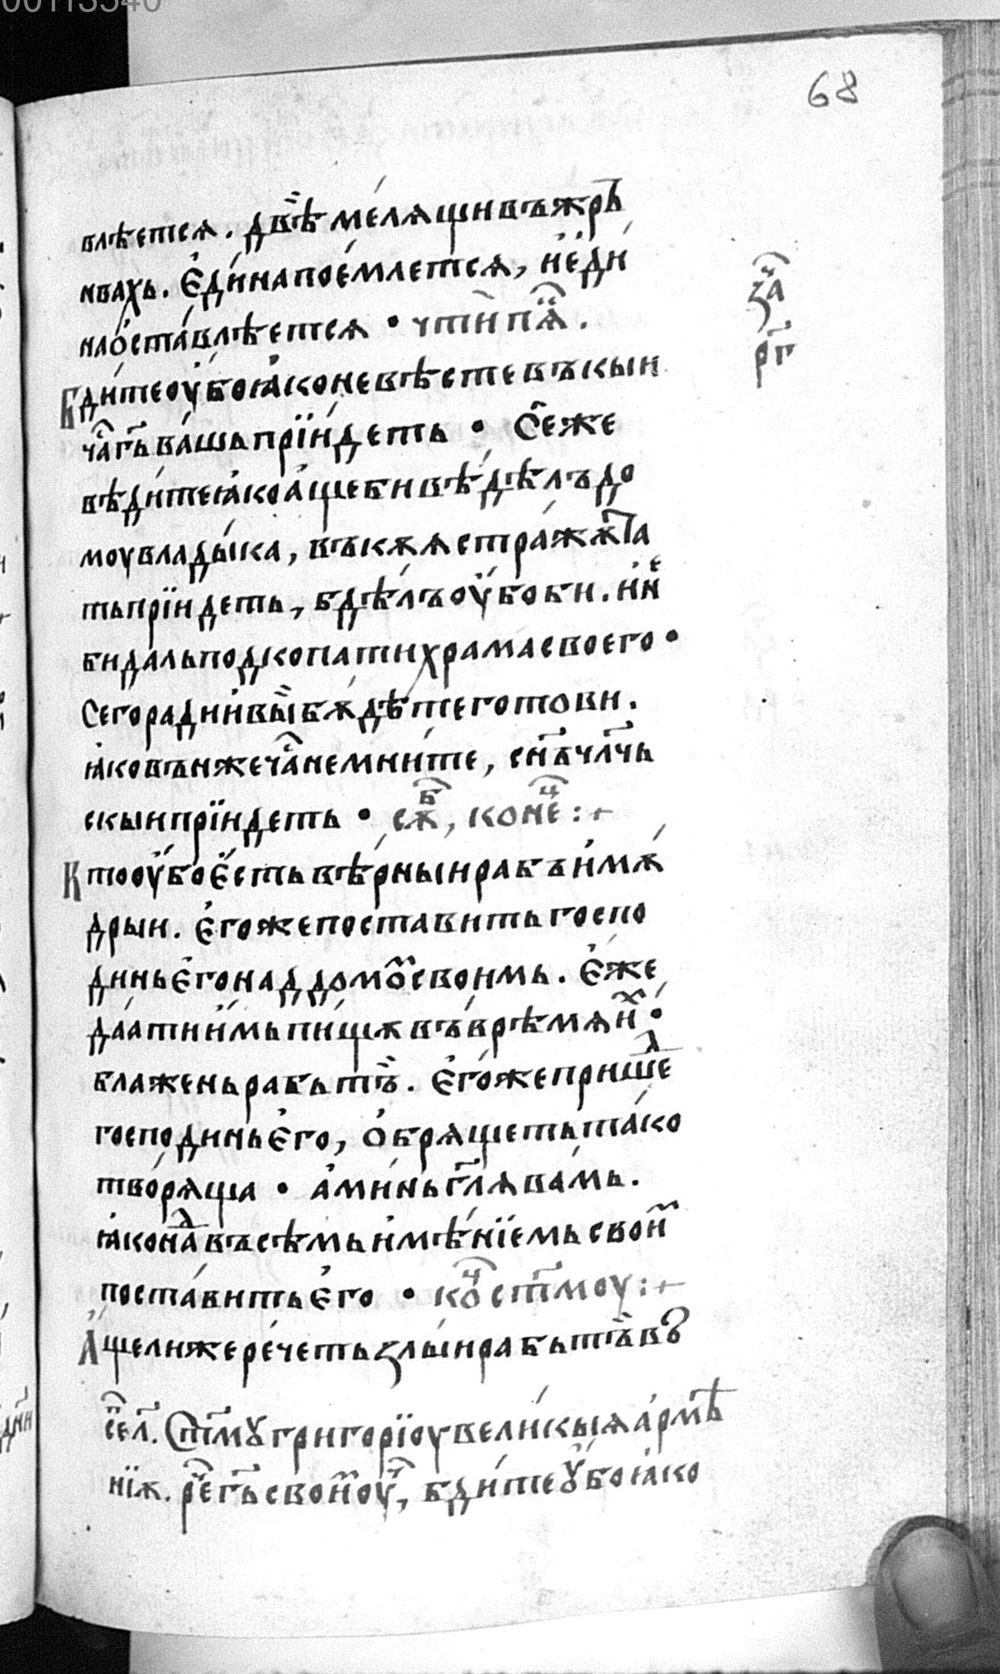 00113540
68
влѣетсѧ. двѣ̀ ме́лѧщи въ жрь̑
нвахь. є҆ди́на пое́млетсѧ, и҆ є҆ди́
на ѡ҆ста́влѣетсѧ • чти̑ пѧ̑.
за҄
рп҃г
Бди́те ѹ҆бо ꙗ҆ко не вѣсте въ кыи
ча̑ гь҃ ва́шь прїи́деть • Се́ же
вѣди́те ꙗ҆ко а҆ще би вѣ́дѣлъ до
моу влады́ка, въ кѫѧ стра́жѫ та
ть прїи́деть, бдѣ́лъ ѹ҆бо би. и҆ не҆
би даль подкопати храма своего •
Сего ради и҆ вы̀ бѫ́дѣте готови.
ꙗ҆ко въ н҆же ча̑ не мни́те, сн҃ъ чл҃чь
скыи прїи́деть • сѫ҄б, коне҄ц :+
Кто ѹ҆бо є҆сть вѣ́рныи рабъ и҆ мѫ́
дрыи. є҆гоже поставить госпо
динь є҆го над домо̑ своимь. є҆же
даати и҆мь пи́щѫ въ врѣмѧ и҆х •
блажень рабь тъ̀. є҆го́же прише҄д
господинь є҆го, ѻ҆брѧщеть та́ко
тво́рѧща • а҆ми́нь гл҃ѧ ва́мь.
ꙗ҆ко на҄д въсѣ́мь и҆мѣ́нїемь свои̑
поста́вить є҆го • ко҄ц ст҃моу :+
А҆ще ли же ре́четь злы́и рабь тъ̀ въ
се҄л. Ст҃мꙋ григорїоу вели́кыѧ а҆рмѣ҃
нїѫ. ре҄ гь҃ свои̑ оу҄ч, бди́те ꙋ҆бо ꙗ҆ко